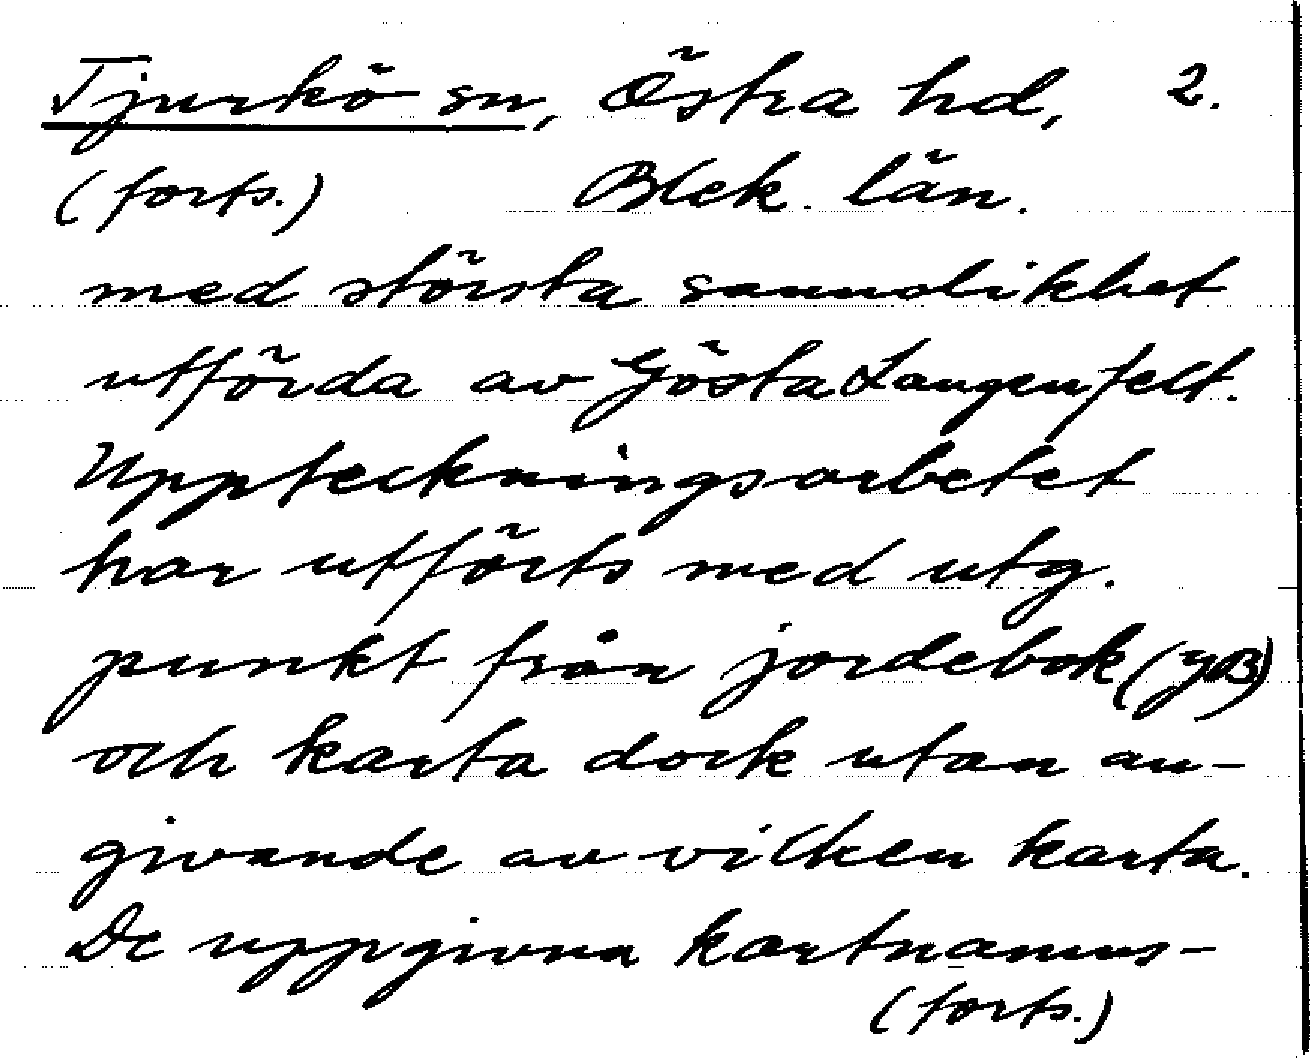 Tjurkö sn, Östra hd, 2.
(forts.) Blek. län.
med största sannolikhet
utförda av Gösta Langenfelt.
Uppteckningsarbetet
har utförts med utg.
punkt från jordebok (JB)
och karta dock utan an-
givande av vilken karta.
De uppgivna kartnamns-
(forts.)